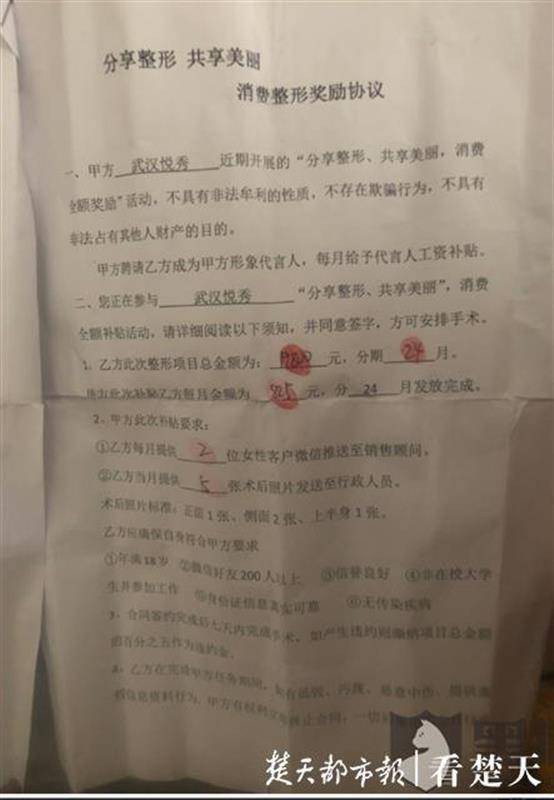 分享整形 共享美丽
消费整形奖励协议
一、甲方 武汉悦秀 近期开展的“分享整形、共享美丽，消费
全额奖励”活动，不具有非法牟利的性质，不存在欺骗行为，不具有
非法占有其他人财产的目的。
甲方聘请乙方成为甲方形象代言人，每月给予代言人工资补贴。
二、您正在参与 武汉悦秀 “分享整形、共享美丽”，消费
全额补贴活动，请详细阅读以下须知，并同意签字，方可安排手术。
1、乙方此次整形项目总金额为： 元，分期 24 月。
甲方此次补贴乙方每月金额为 825 元，分 24 月发放完成。
2、甲方此次补贴要求：
①乙方每月提供 2 位女性客户微信推送至销售顾问。
②乙方当月提供 5 张术后照片发送至行政人员。
术后照片标准：正面1张、侧面2张、上半身1张。
乙方应确保自身符合甲方要求
①年满18岁 ②微信好友200人以上 ③信誉良好 ④非在校大学
生并参加工作 ⑤身份证信息真实可靠 ⑥无传染疾病
3、合同签约完成后七天内完成手术，如产生违约则缴纳项目总金额
的百分之五作为违约金。
4、乙方在完成甲方任务期间，如有诋毁、污蔑、恶意中伤、
信息资料行为，甲方有权利立即终止合同，一切
楚天都市報 看楚天